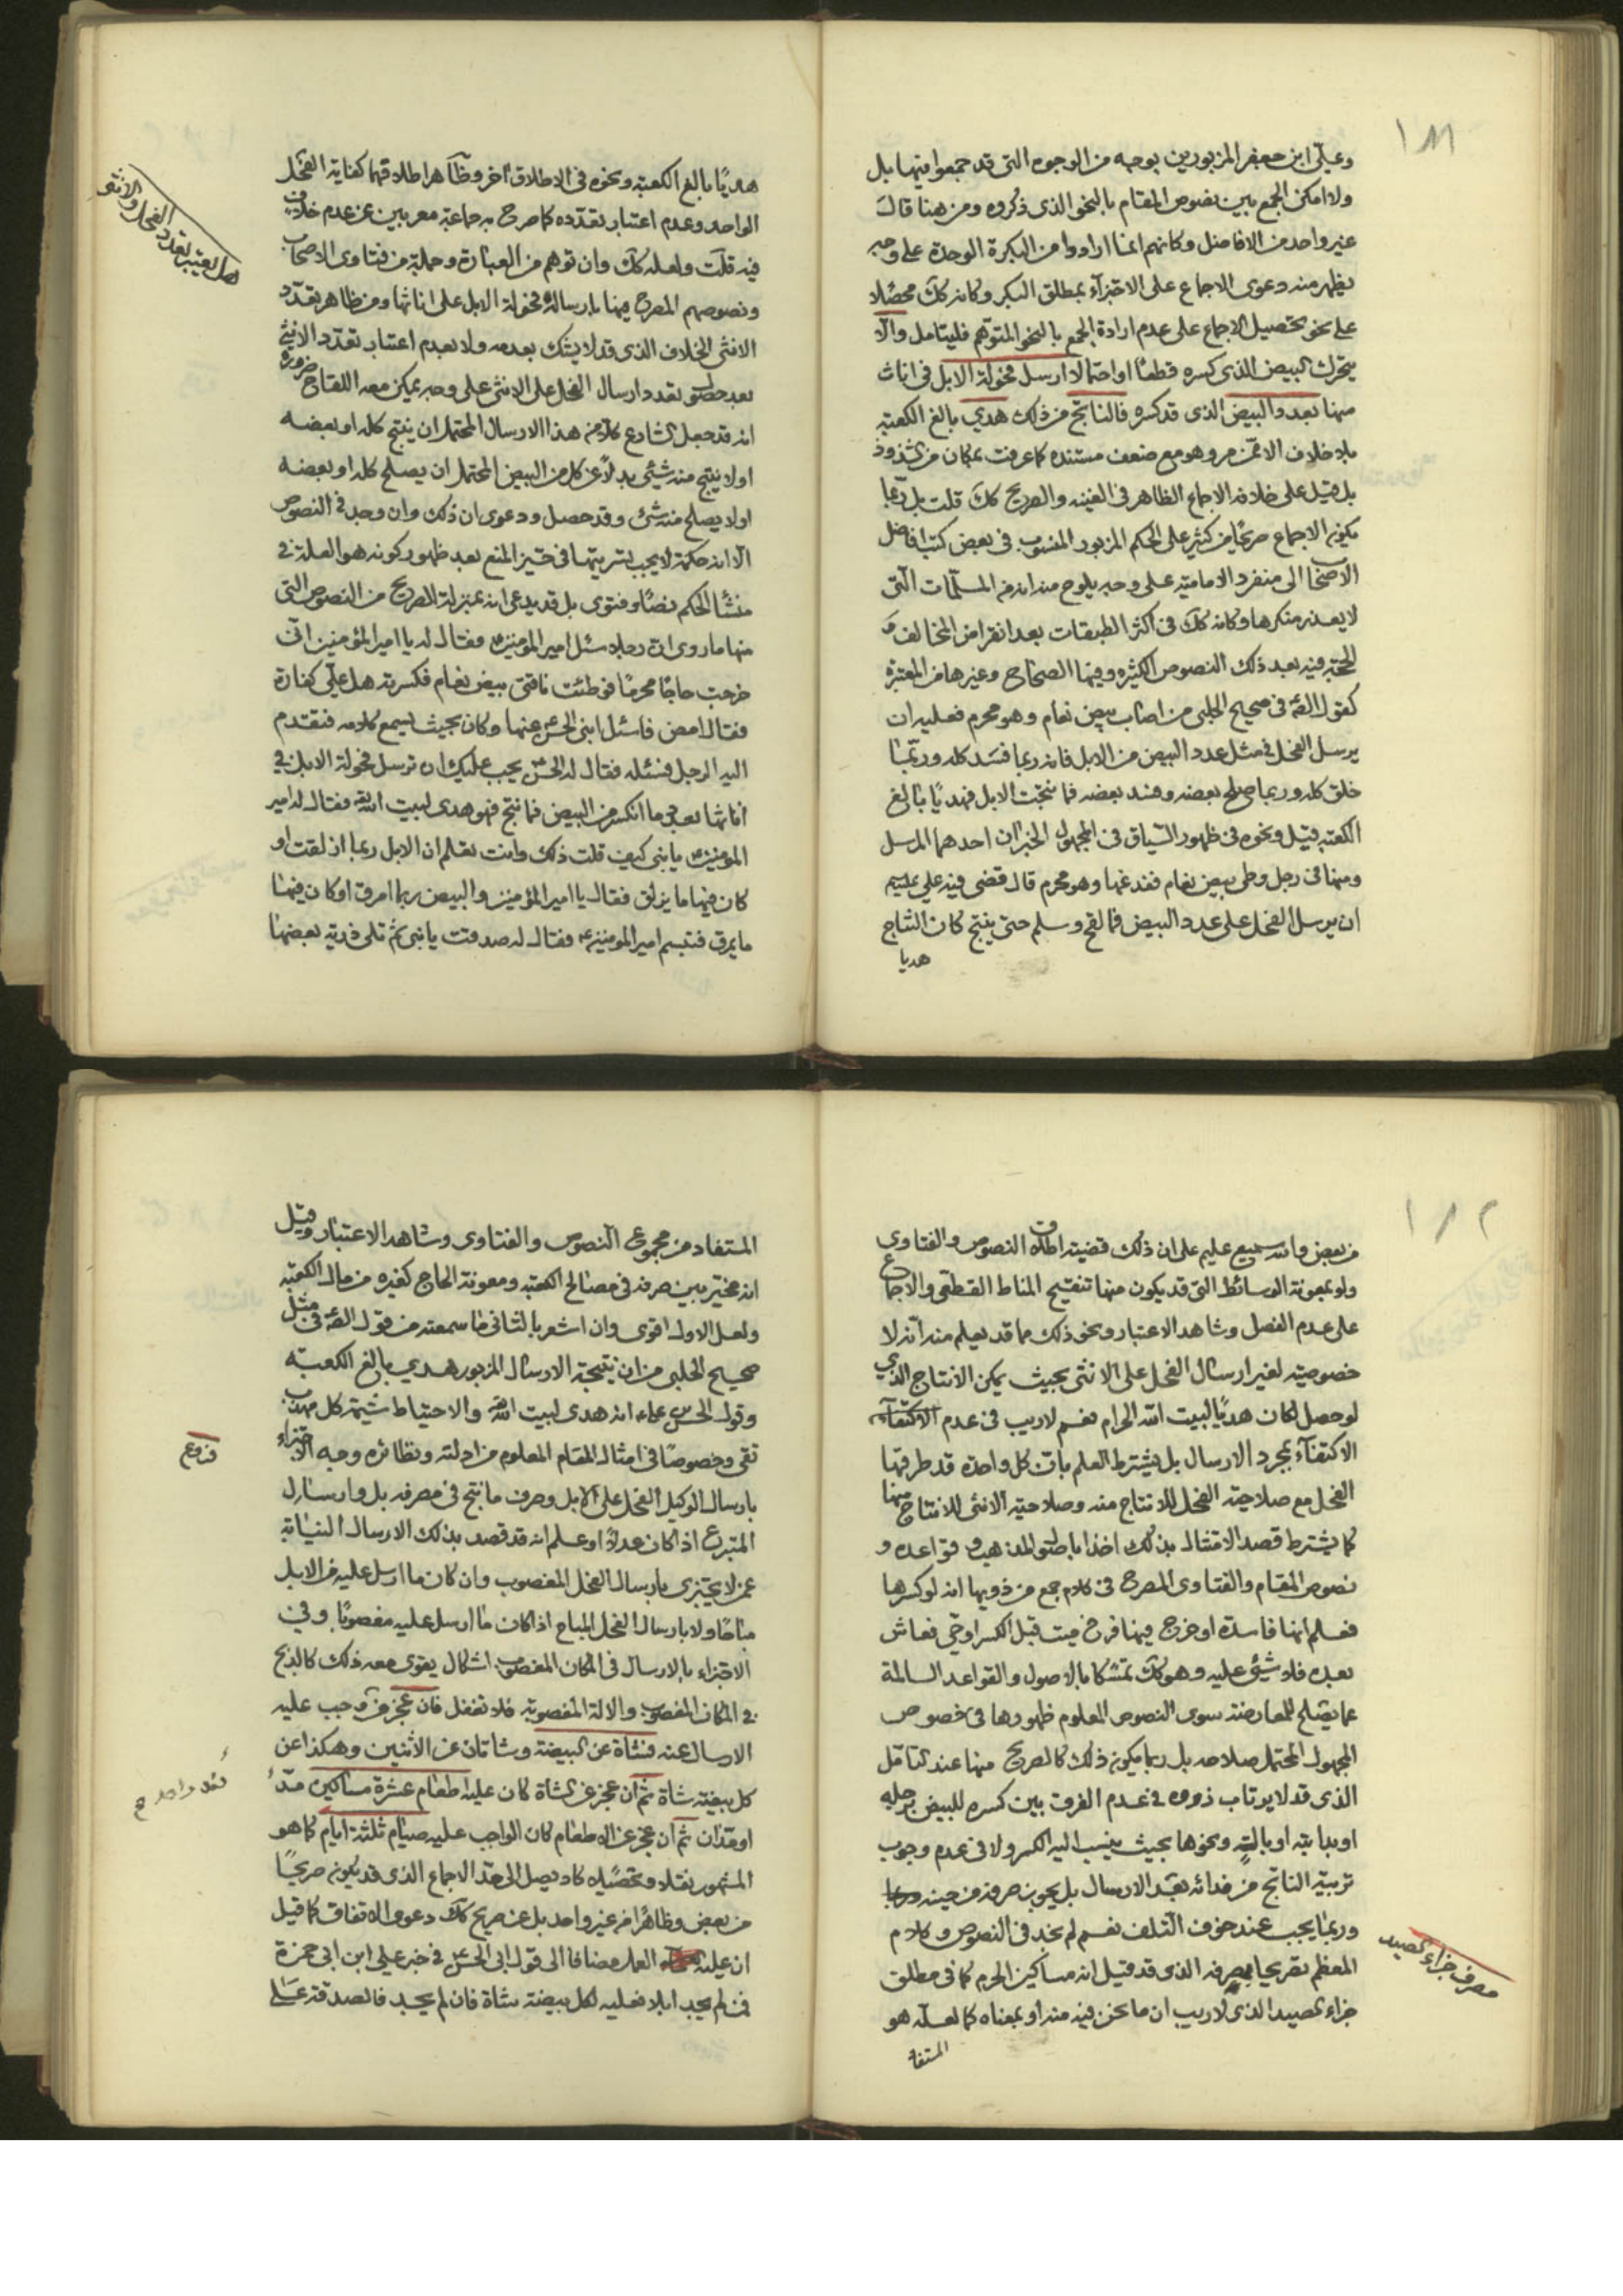 ١٨١
وعلي ابن جعفر المزبورين بوجه من الوجوه التي قد جمعوا فيها بل
ولا امكن الجمع بين نصوص المقام بالنحو الذي ذكروه ومن هنا قال
غير واحد من الافاضل وكانهم انما ارادوا من البكرة الوحدة على وجه
يظهر منه دعوى الاجماع على الاجتزاء بمطلق البكر وكانه كك محصلا
على نحو تحصيل الاجماع على عدم ارادة الجمع بالنحو المتوهم فليتامل والا
يتحرك البيض الذي كسره قطعا او احتمالا ارسل فحولة الابل في اناث
منها بعدد البيض الذي قد كسره فالناتج من ذلك هدي بالغ الكعبة
بلا خلاف الا ممن مر وهو مع ضعف مستنده كما عرفت بمكان من الشذوذ
بل قيل على خلافه الاجماع الظاهر في الغنية والصريح كك قلت بل ربما
يكون الاجماع صريحا من كثير على الحكم المزبور المنسوب في بعض كتب افاضل
الاصحاب الى منفرد الامامية على وجه يلوح منه انه من المسلمات التي
لا يعذر منكرها وكانه كك في اكثر الطبقات بعد انقراض المخالف و
الحجة فيه بعد ذلك النصوص الكثيرة وفيها الصحاح وغيرها من المعتبرة
كقول الص في صحيح الحلبي من اصاب بيض نعام وهو محرم فعليه ان
يرسل الفحل في مثل عدد البيض من الابل فانه ربما فسد كله وربما
خلق كله وربما صلح بعضه وفسد بعضه فما نتجت الابل فهديا بالغ
الكعبة قيل ونحوه في ظهور السياق في المجهول الخبران احدهما المرسل
ومنها في رجل وطى بيض نعام ففدغها وهو محرم قال قضى فيه علي عليه
ان يرسل الفحل على عدد البيض فما لقح وسلم حتى ينتج كان النتاج
هديا
هديا بالغ الكعبة ونحوه في الاطلاق اخر وظاهر اطلاقها كفاية الفحل
الواحد وعدم اعتبار تعدده كما صرح به جماعة معربين عن عدم خلاف
فيه قلت ولعله كك وان توهم من العبارة وجملة من فتاوى الاصحاب
ونصوصهم المصرح فيها بارسال فحولة الابل على اناثها ومن ظاهر تعدد
الانثى الخلاف الذي قد لا يشك بعدمه ولا بعدم اعتبار تعدد الانثى
بعد حصول تعدد ارسال الفحل على الانثى على وجه يمكن معه اللقاح ضرورة
انه قد جعل الشارع كلا من هذا الارسال المحتمل ان ينتج كله او بعضه
او لا ينتج منه شئ بدلا عن كل من البيض المحتمل ان يصلح كله او بعضه
او لا يصلح منه شئ وقد حصل ودعوى ان ذلك وان وجد في النصوص
الا انه حكمة لا يجب تسريتها في حيز المنع بعد ظهور كونه هو العلة في
منشأ الحكم نصا وفتوى بل قد يدعى انه بمنزلة الصريح من النصوص التي
منها ما روى ان رجلا سئل امير المؤمنين ع فقال له يا امير المؤمنين اني
خرجت حاجا محرما فوطئت ناقتي بيض نعام فكسرته هل علي كفارة
فقال امض فاسئل ابني الحسن عنها وكان بحيث يسمع كلامه فتقدم
اليه الرجل فسئله فقال له الحسن يجب عليك ان ترسل فحولة الابل في
اناثها بعدد ما انكسر من البيض فما نتج فهو هدى لبيت الله فقال له امير
المؤمنين ع يا بني كيف قلت ذلك وانت تعلم ان الابل ربما ازلقت او
كان فيها ما يزلق فقال يا امير المؤمنين والبيض ربما امرق او كان فيها
ما يمرق فتبسم امير المؤمنين ع وقال له صدقت يا بني ثم تلى ذرية بعضها
هل يعتبر تعدد الفحل والانثى
١٨٢
من بعض والله سميع عليم على ان ذلك قضية اطلاق النصوص والفتاوى
ولو بمعونة الوسائط التي قد يكون منها تنقيح المناط القطعي والاجماع
على عدم الفصل وشاهد الاعتبار ونحو ذلك مما قد يعلم منه انه لا
خصوصية لغير ارسال الفحل على الانثى بحيث يمكن الانتاج الذي
لو حصل لكان هديا لبيت الله الحرام نعم لا ريب في عدم الاكتفاء
الاكتفاء بمجرد الارسال بل يشترط العلم بان كل واحدة قد طرقها
الفحل مع صلاحية الفحل للانتاج منه وصلاحية الانثى للانتاج منها
كما يشترط قصد الامتثال بذلك اخذا باصول المذهب وقواعده و
نصوص المقام والفتاوى المصرح في كلام جمع من ذويها انه لو كسرها
فعلم انها فاسدة او خرج فيها فرخ ميت قبل الكسر او حي فعاش
بعده فلا شئ عليه وهو كك تمسكا بالاصول والقواعد السالمة
عما يصلح للمعارضة سوى النصوص المعلوم ظهورها في خصوص
المجهول المحتمل صلاحه بل ربما يكون ذلك كالصريح منها عند المتامل
الذي قد لا يرتاب ذووه في عدم الفرق بين كسره للبيض برجله
او بدابته او بالته ونحوها بحيث ينسب اليه الكسر ولا في عدم وجوب
تربية الناتج من فدائه بعد الارسال بل يجوز صرفه من حينه وربما
وربما يجب عند خوف التلف نعم لم نجد في النصوص وكلام
المعظم تصريحا بمصرفه الذي قد قيل انه مساكين الحرم كما في مطلق
جزاء الصيد الذي لا ريب ان ما نحن فيه منه او بمعناه كما لعله هو
المستفا
مصرف جزاء الصيد
المستفاد من مجموع النصوص والفتاوى وشاهد الاعتبار وقيل
انه مخير بين صرفه في مصالح الكعبة ومعونة الحاج كغيره من مال الكعبة
ولعل الاول اقوى وان اشعر بالثاني ما سمعته من قول الص في مثل
صحيح الحلبي من ان نتيجة الارسال المزبور هدي بالغ الكعبة
وقول الحسن ع انه هدى لبيت الله والاحتياط شيمة كل مهذب
تقي وخصوصا في امثال المقام المعلوم من ادلته ونظائره وجه الاجتزاء
بارسال الوكيل الفحل على الابل وصرف ما نتج في مصرفه بل وارسال
المتبرع اذا كان عدلا او علم انه قد قصد بذلك الارسال النيابة
عمن لا يجتزى بارسال الفحل المغصوب وان كان ما ارسل عليه من الابل
مباحا ولا بارسال الفحل المباح اذا كان ما ارسل عليه مغصوبا وفي
الاجتزاء بالارسال في المكان المغصوب اشكال يقوى معه ذلك كالذبح
في المكان المغصوب والالة المغصوبة فلا تغفل فان عجز من وجب عليه
الارسال عنه فشاة عن البيضة وشاتان عن الاثنين وهكذا عن
كل بيضة شاة ثم ان عجز عن الشاة كان عليه اطعام عشرة مساكين مدا
او مدان ثم ان عجز عن الاطعام كان الواجب عليه صيام ثلثة ايام كما هو
المشهور نقلا وتحصيلا كاد يصل الى حد الاجماع الذي قد يكون صريحا
من بعض وظاهرا من غير واحد بل عن صريح كك دعوى الاتفاق كما قيل
ان عليه العمل مضافا الى قول ابي الحسن ع في خبر علي ابن ابي حمزة
فمن لم يجد ابلا فعليه لكل بيضة شاة فان لم يجد فالصدقة على
فروع